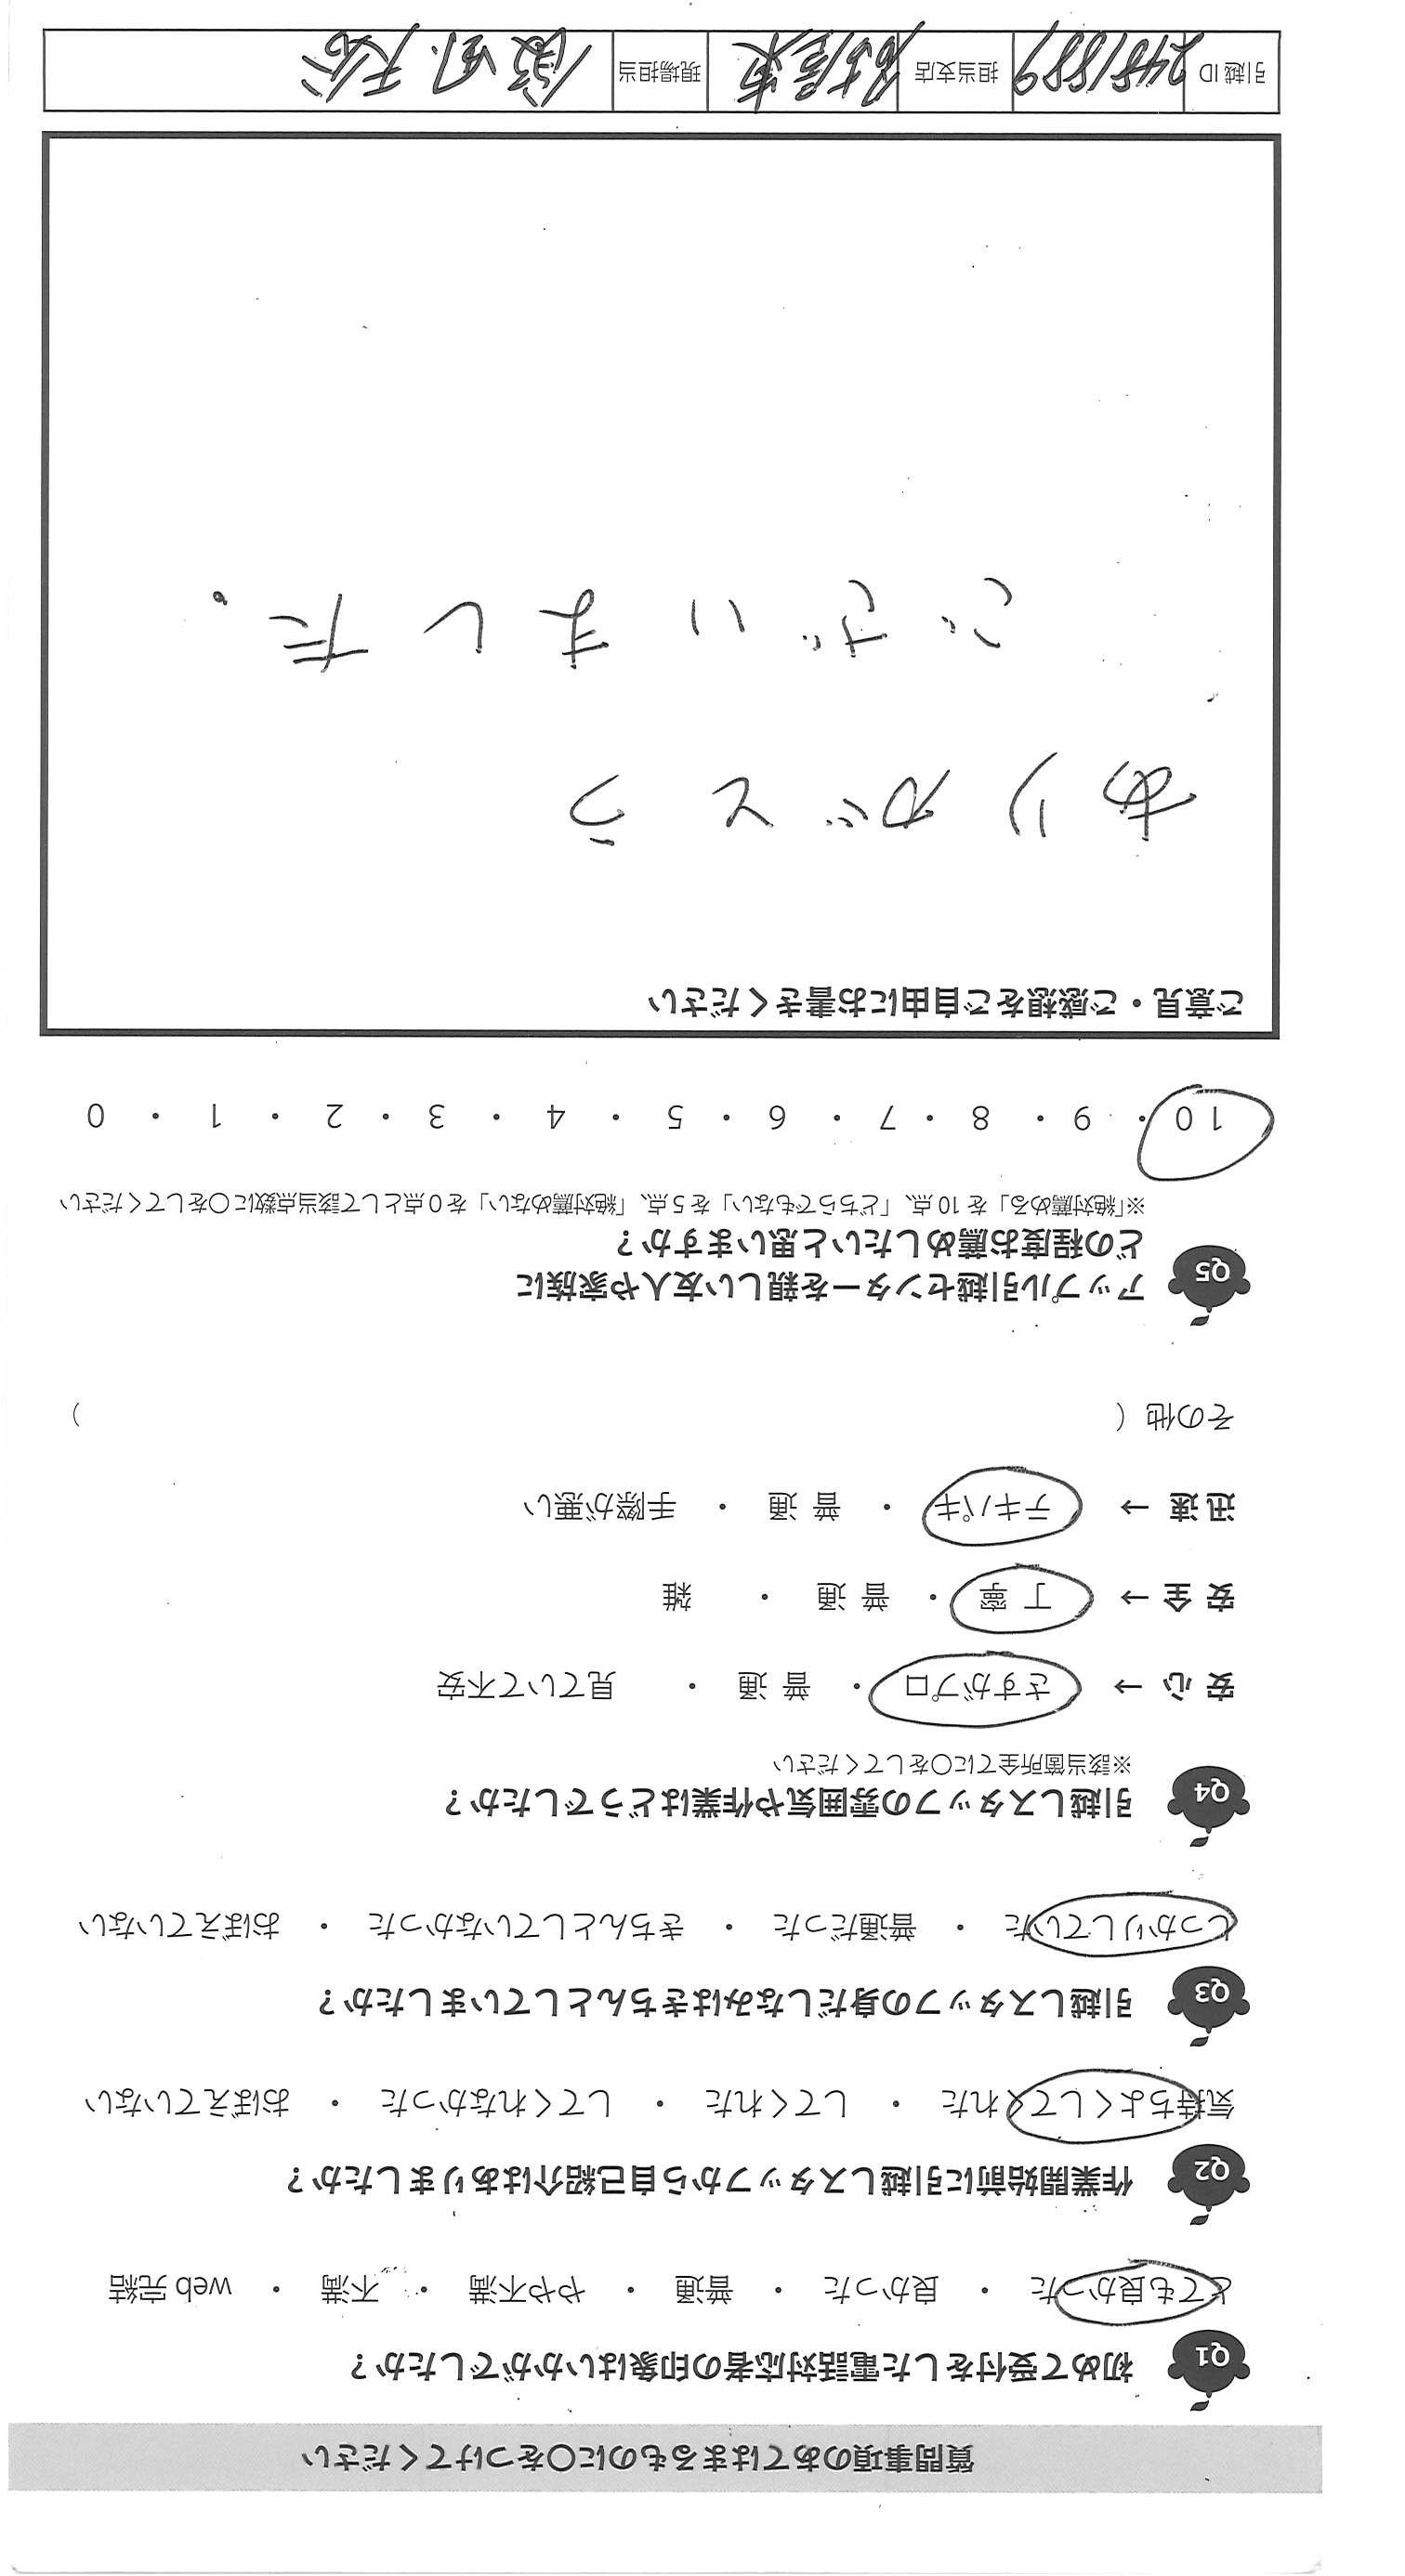 質問事項のあてはまるものに○をつけてください
Q1 初めて受付をした電話対応者の印象はいかがでしたか？
とても良かった ・ 良かった ・ 普通 ・ やや不満 ・ 不満 ・ web 完結
Q2 作業開始前に引越しスタッフから自己紹介はありましたか？
気持ちよくしてくれた ・ してくれた ・ してくれなかった ・ おぼえていない
Q3 引越しスタッフの身だしなみはきちんとしていましたか？
しっかりしていた ・ 普通だった ・ きちんとしていなかった ・ おぼえていない
Q4 引越しスタッフの雰囲気や作業はどうでしたか？
※該当箇所全てに○をしてください
安 心 → さすがプロ ・ 普 通 ・ 見ていて不安
安 全 → 丁 寧 ・ 普 通 ・ 雑
迅 速 → テキパキ ・ 普 通 ・ 手際が悪い
その他（ ）
Q5 アップル引越センターを親しい友人や家族に
どの程度お薦めしたいと思いますか？
※「絶対薦める」を 10 点、「どちらでもない」を 5 点、「絶対薦めない」を 0 点として該当点数に○をしてください
10 ・ 9 ・ 8 ・ 7 ・ 6 ・ 5 ・ 4 ・ 3 ・ 2 ・ 1 ・ 0
ご意見・ご感想をご自由にお書きください
ありがとう
ございました。
引越 ID 2481889 担当支店 現場担当